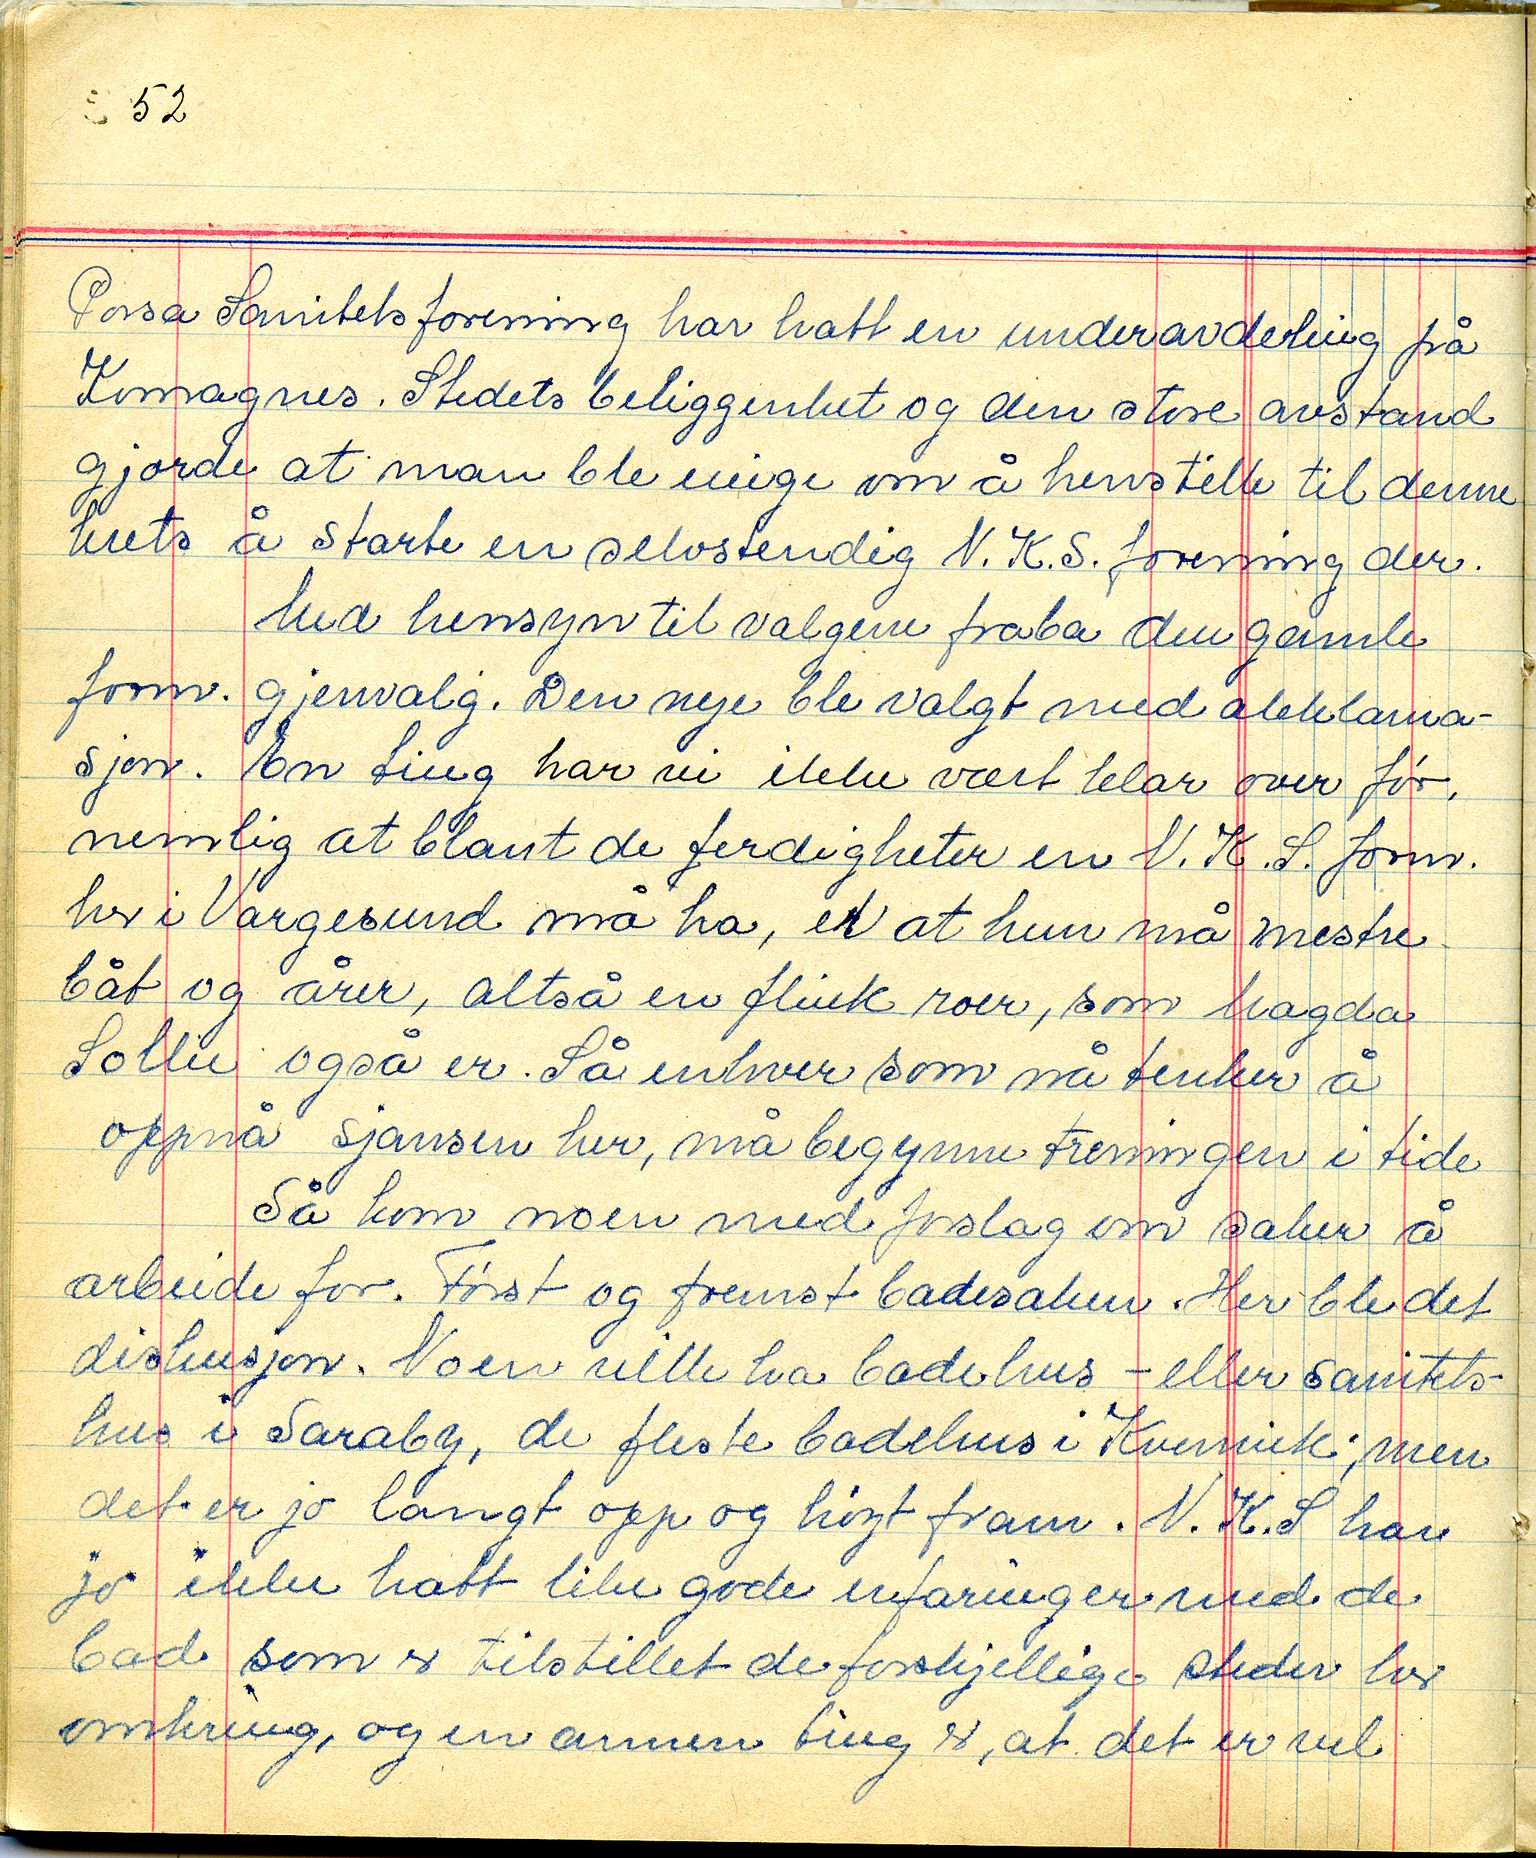 52
Porsa Sanitetsforening har hatt en underavdeling på
Komagnes. Stedets beliggenhet og den store avstand
gjorde at man ble enige om å henstille til denne
å starte en selvstendig N.K.S. forening der.
Med hensyn til valgene fraba den gamle
form. gjenvalg. Den nye ble valgt med akklama-
sjon. En ting har vi ikke vært klar over før,
nemlig at blant de ferdigheter en N.K.S. form.
her i Vargesund må ha, er at hun må mestre
båt og årer, altså en flink roer, som Magda
Sollie også er. Så enhver som nå tenker å
oppnå sjansen her, må begynne treningen i tide
Så kom noen med forslag om saker å
arbeide for. Først og fremst badesaken. Her ble det
diskusjon. Noen ville ha badehus – eller sanitets-
hus i Saraby, de fleste badehus i Kvenvik, men
det er jo langt opp og høyt fram. N.K.S har
jo ikke hatt like gode erfaringer med de
bad som er tilstillet de forskjellige steder her
omkring, og en annen ting er, at det er vel